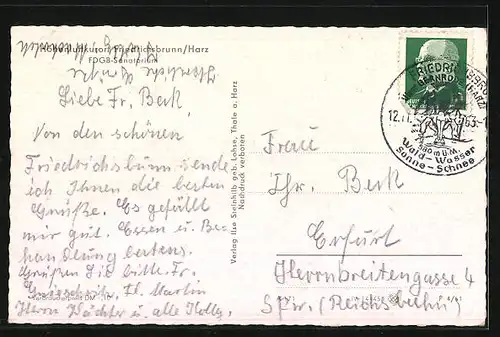 Höhenluftkurort Friedrichsbrunn/Harz
FDGB-Sanatorium
Herzliche Grüße
Liebe Fr. Berk
Von den schönen
Friedrichsbrunn sende
ich Ihnen die besten
Grüße. Es gefällt
mir gut. Essen u. Be
handlung bestens.
Grüßen Sie bitte Fr.
Martin
Herrn Wächter u. alle Kolleg.
Verlag Ilse Steinhilb geb. Lohse, Thale a. Harz
Nachdruck verboten
FRIEDRICHSBRUNN
(HARZ)
580 m ü. M.
Wald - Wasser
Sonne - Schnee
Frau
Thr. Berk
Erfurt
Herrnbreitengasse 4
Spw. (Reichsbahn)